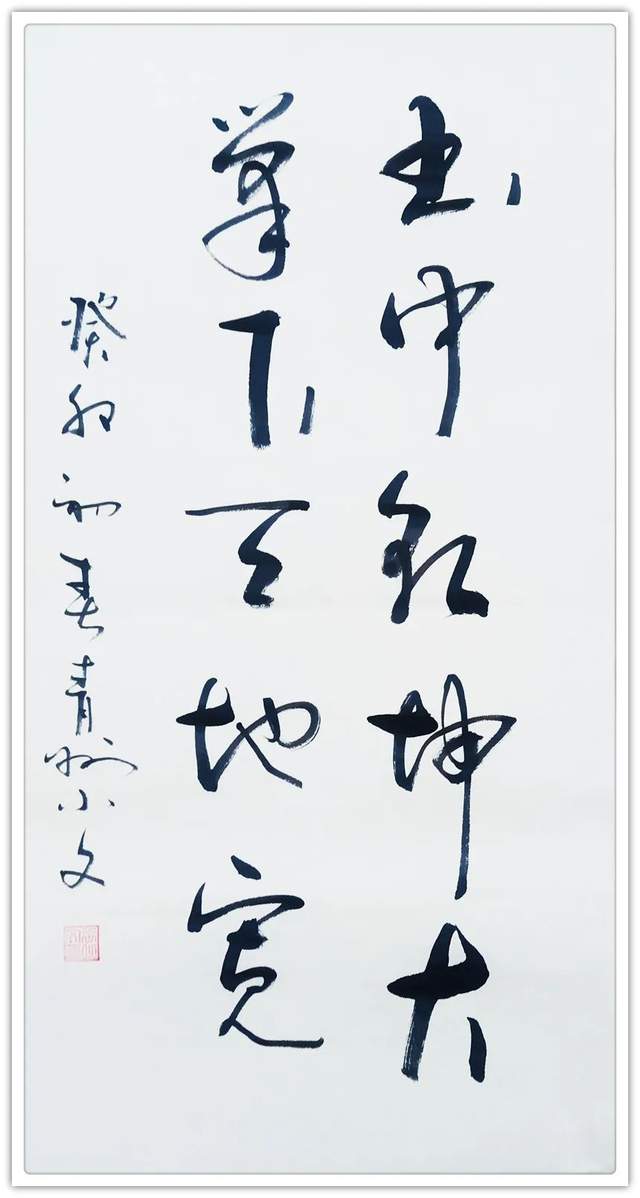 书中乾坤大
笔下天地宽
癸卯初春青州小文